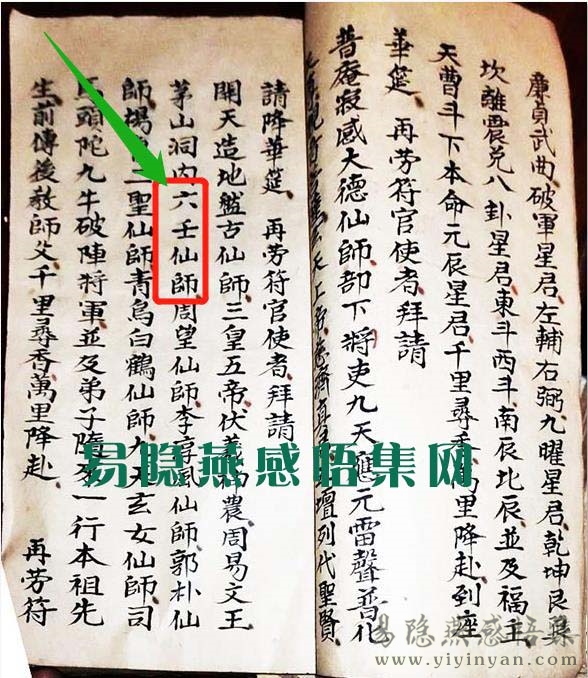 廉貞武曲破軍星君左輔右弼九曜星君乾坤艮巽
坎離震兌八卦星君東斗西斗南辰北辰並及福主
天曹斗下本命元辰星君千里尋香萬里降赴到座
華筵 再勞符官使者拜請
普庵寂感大德仙師部下將吏九天應元雷聲普化
天上帝 真 壇列代聖賢
請降華筵 再勞符官使者拜請
開天造地盤古仙師三皇五帝伏羲神農周易文王
茅山洞內六壬仙師周望仙師李淳風仙師郭朴仙
師楊 二聖仙師青烏白鶴仙師九天玄女仙師司
馬頭陀九牛破陣將軍並及弟子隨 一行本祖先
生前傳後教師父千里尋香萬里降赴 再勞符
易隐燕感悟集网
易隐燕感悟集
www.yiyinyan.com